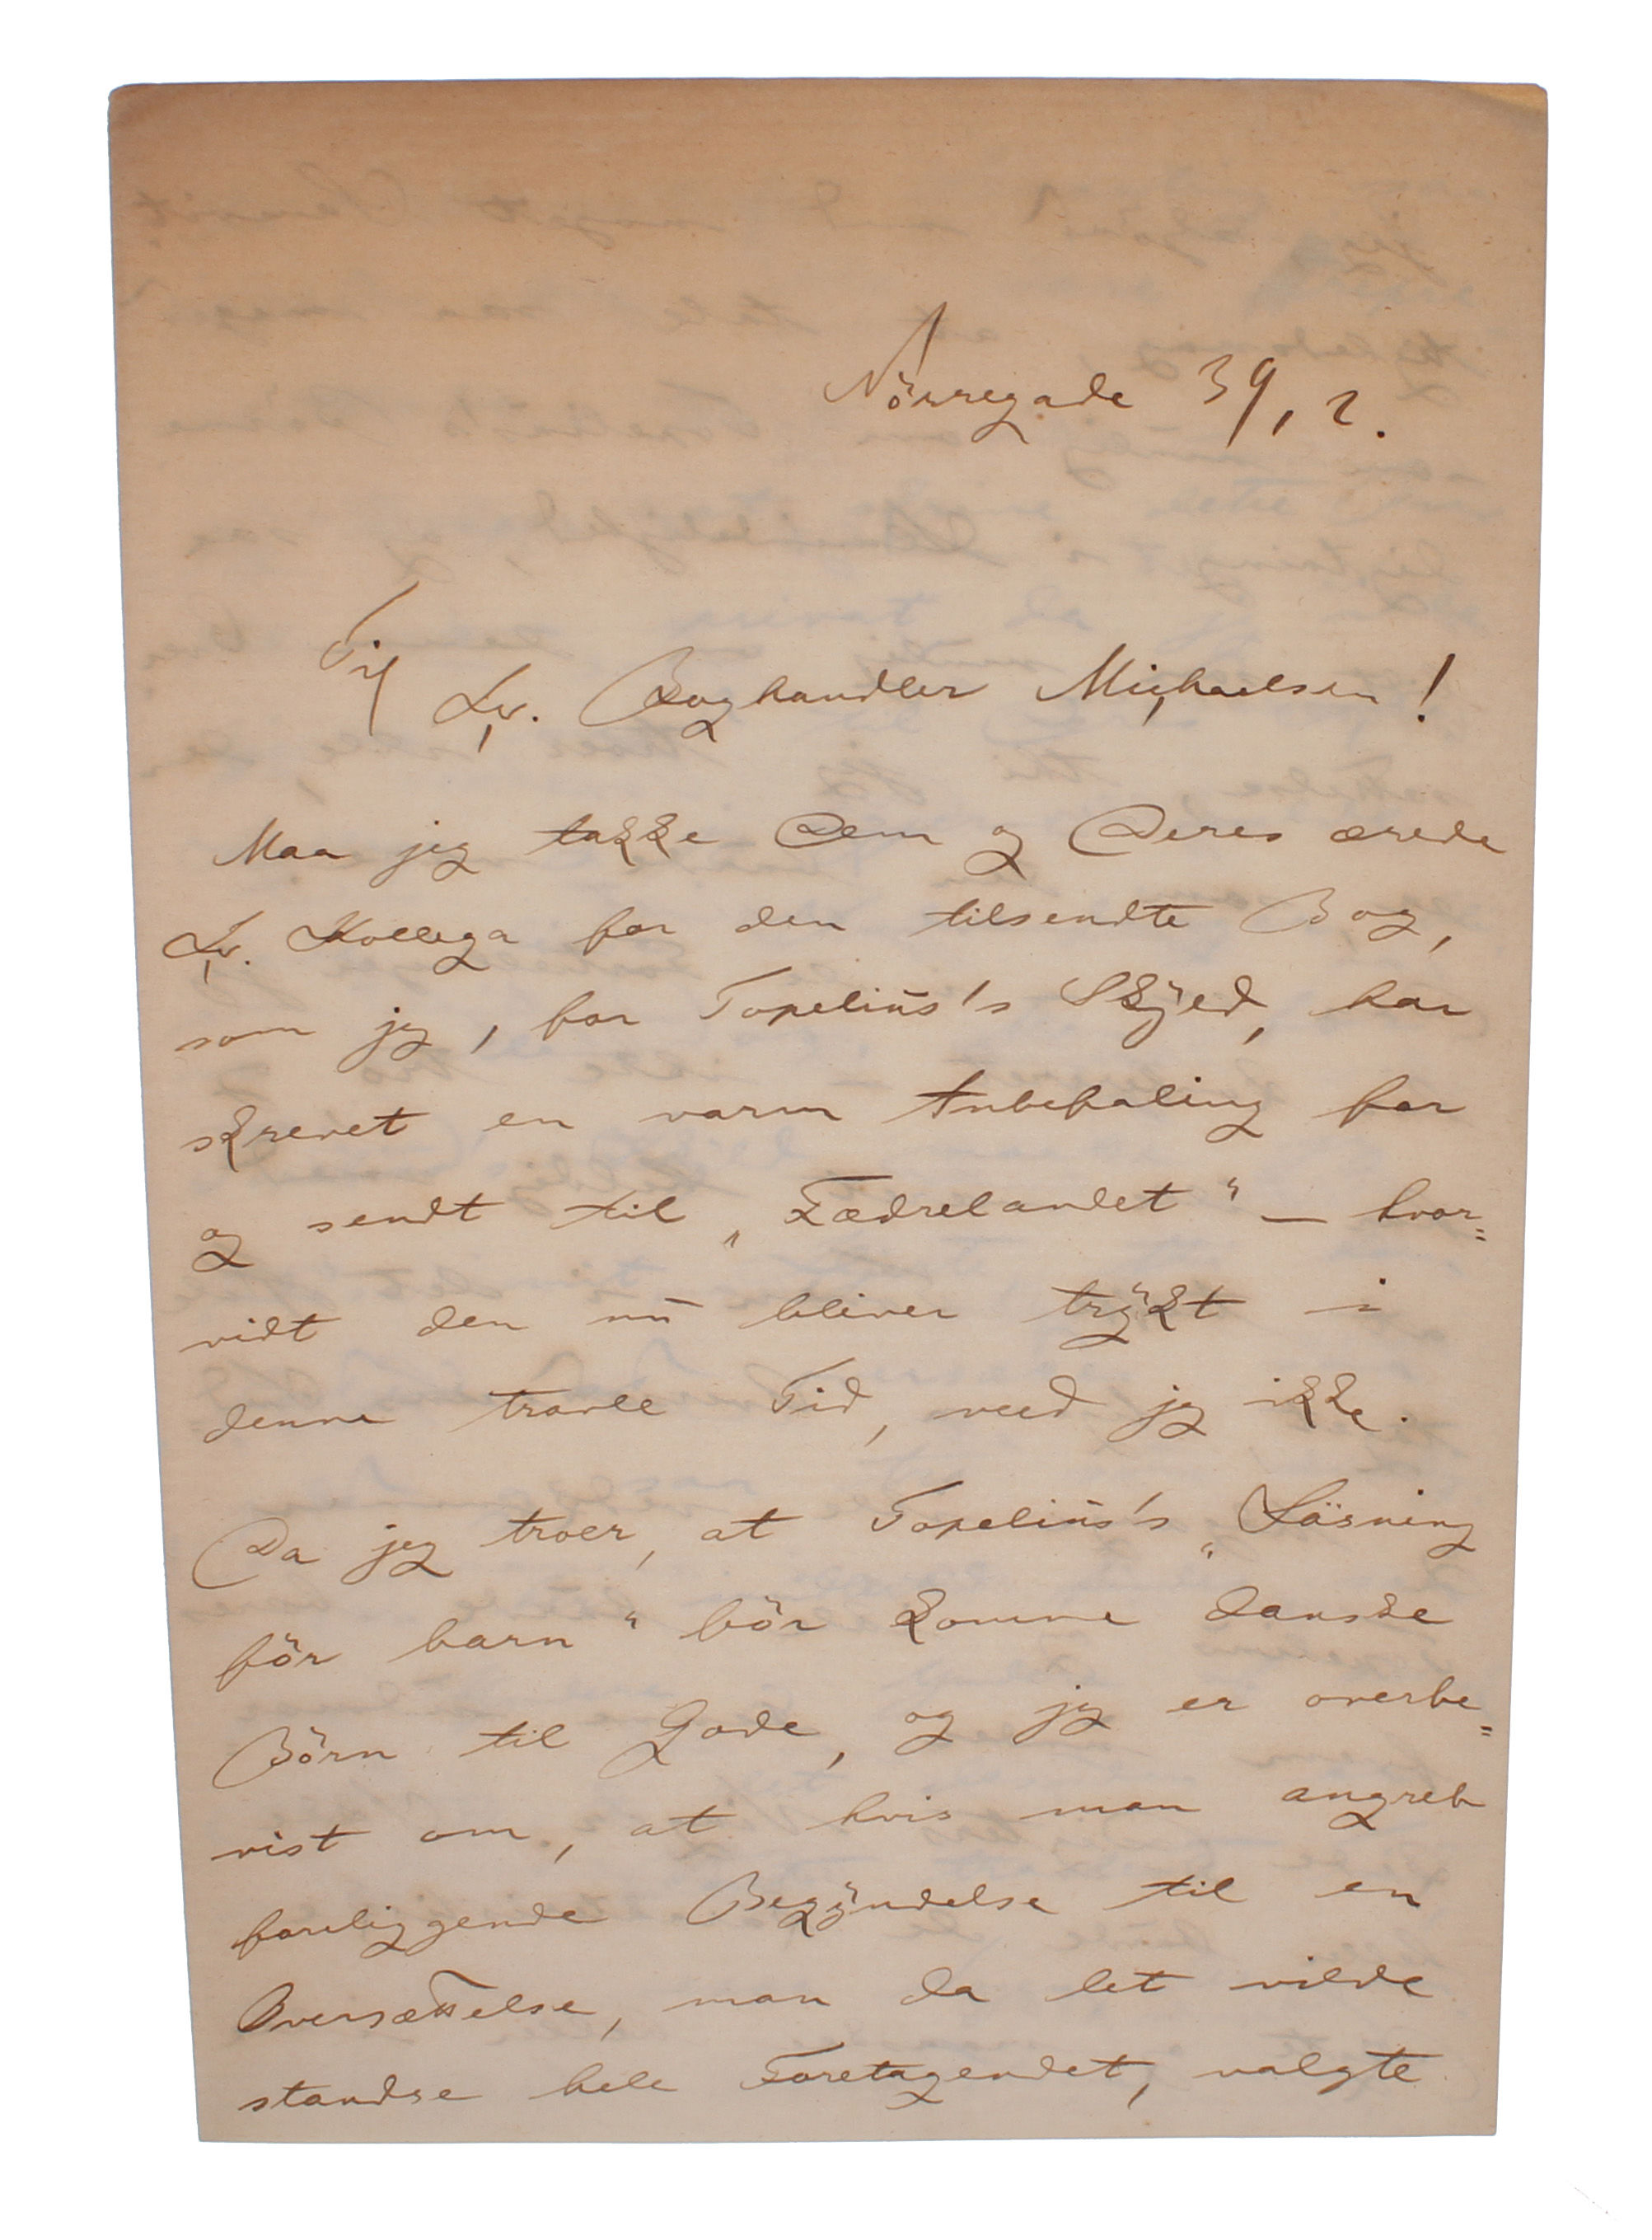 Nörregade 39, 2.
Til
Hr. Boghandler Michaelsen!
Maa jeg takke Dem og Deres ærede
Hr. Kollega for den tilsendte Bog,
som jeg, for Topelius's Skyld, har
skrevet en varm Anbefaling for
og sendt til „Fædrelandet“ — hvor=
vidt den nu bliver trykt i
denne travle Tid, veed jeg ikke.
Da jeg troer, at Topelius's „Läsning
för barn“ bör komme danske
Börn til Gode, og jeg er overbe=
vist om, at hvis man angreb
foreliggende Begyndelse til en
Oversættelse, man da let vilde
standse hele Foretagendet, valgte